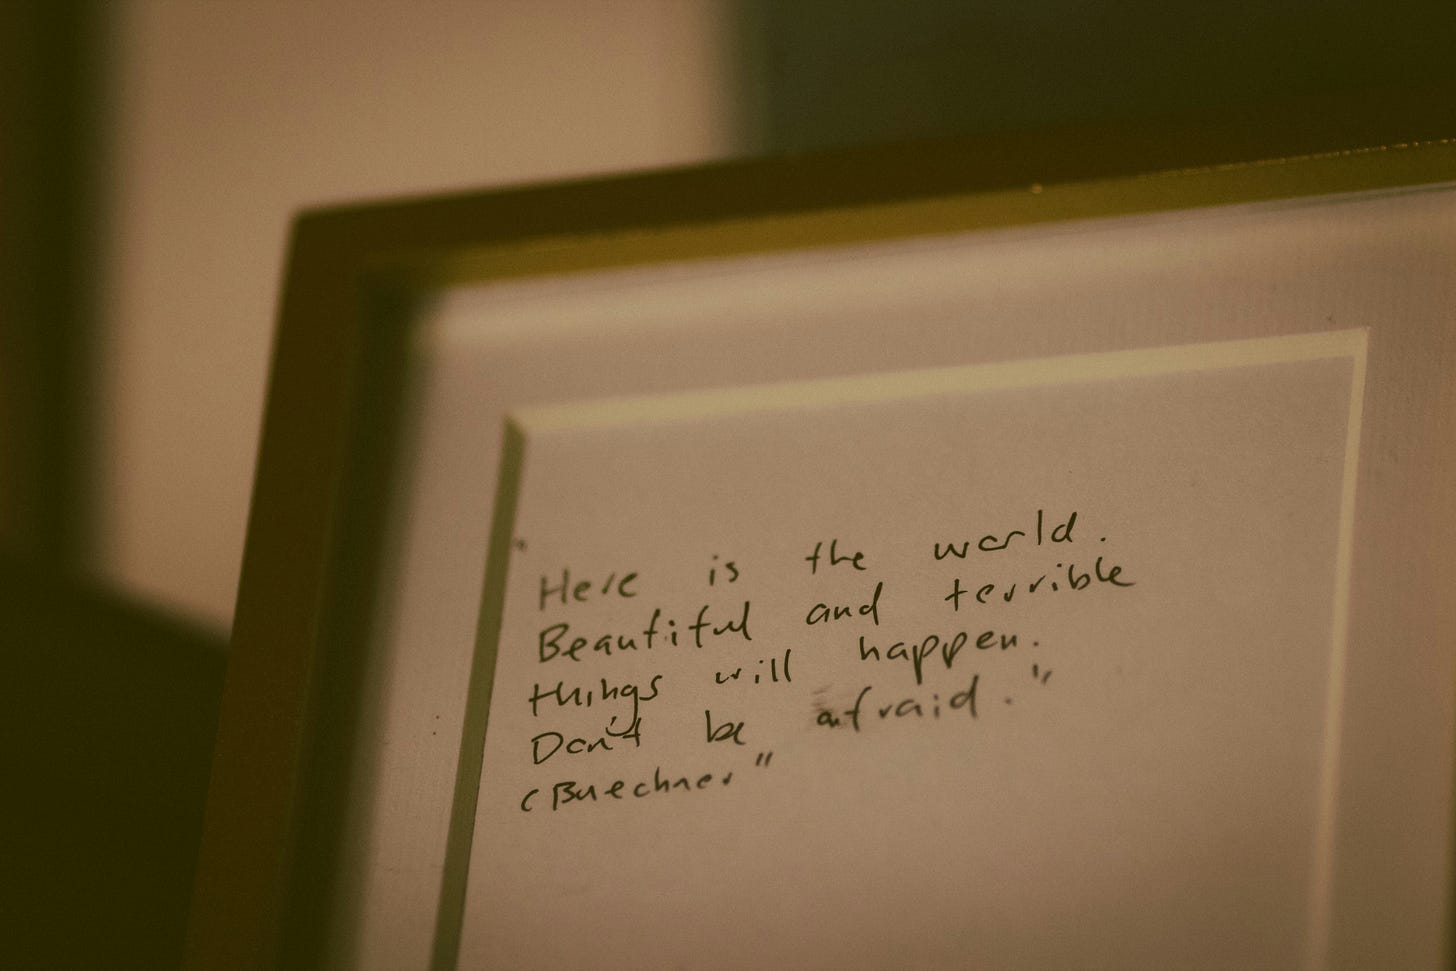 "Here is the world.
Beautiful and terrible
things will happen.
Don't be afraid."
(Buechner"